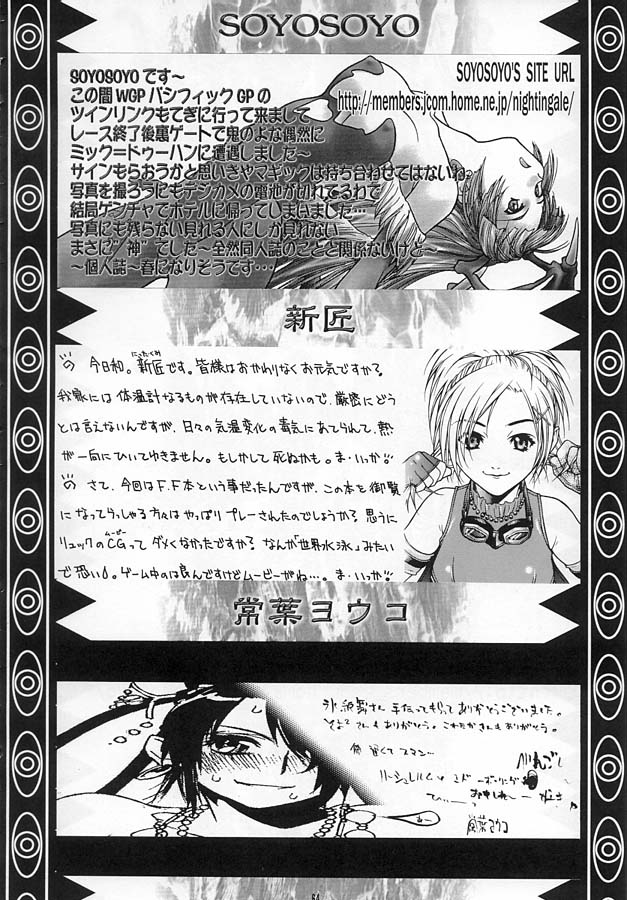 SOYOSOYO
SOYOSOYOです～
この間WGPパシフィックGPの
ツインリンクもてぎに行って来まして
レース終了後裏ゲートで鬼のよな偶然に
ミック=ドゥーハンに遭遇しました～
サインもらおうかと思いきやマギックは持ち合わせてはないね。
写真を撮ろうにもデジカメの電池が切れてるわで
結局ゲンチャでホテルに帰ってしまいました…
写真にも残らない見れる人にしか見れない
まさに“神”でした～全然同人誌のことと関係ないけど
～個人誌～春になりそうです…
SOYOSOYO'S SITE URL
http://members.jcom.home.ne.jp/nightingale/
新匠
今日和。新匠です。皆様はおかわりなくお元気ですか?
にったくみ
我家には体温計なるものが存在していないので、厳密にどう
とは言えないんですが、日々の気温変化の毒気にあてられて、熱
が一向にひいてゆきません。もしかして死ぬかも。ま・いっか!!
さて、今回はF.F本という事だったんですが、この本を御覧
になってらっしゃる方々はやっぱりプレーされたのでしょうか?思うに
リュックのCGってダメくなかったですか?なんか「世界水泳」みたい
ムービー
で恐い♪。ゲーム中のは良んですけどムービーがね…。ま・いっか!!
常葉ヨウコ
手伝ってもらってありがとうございました。
さんもありがとう。これたかさんもありがとう。
遅くてスマン…
64